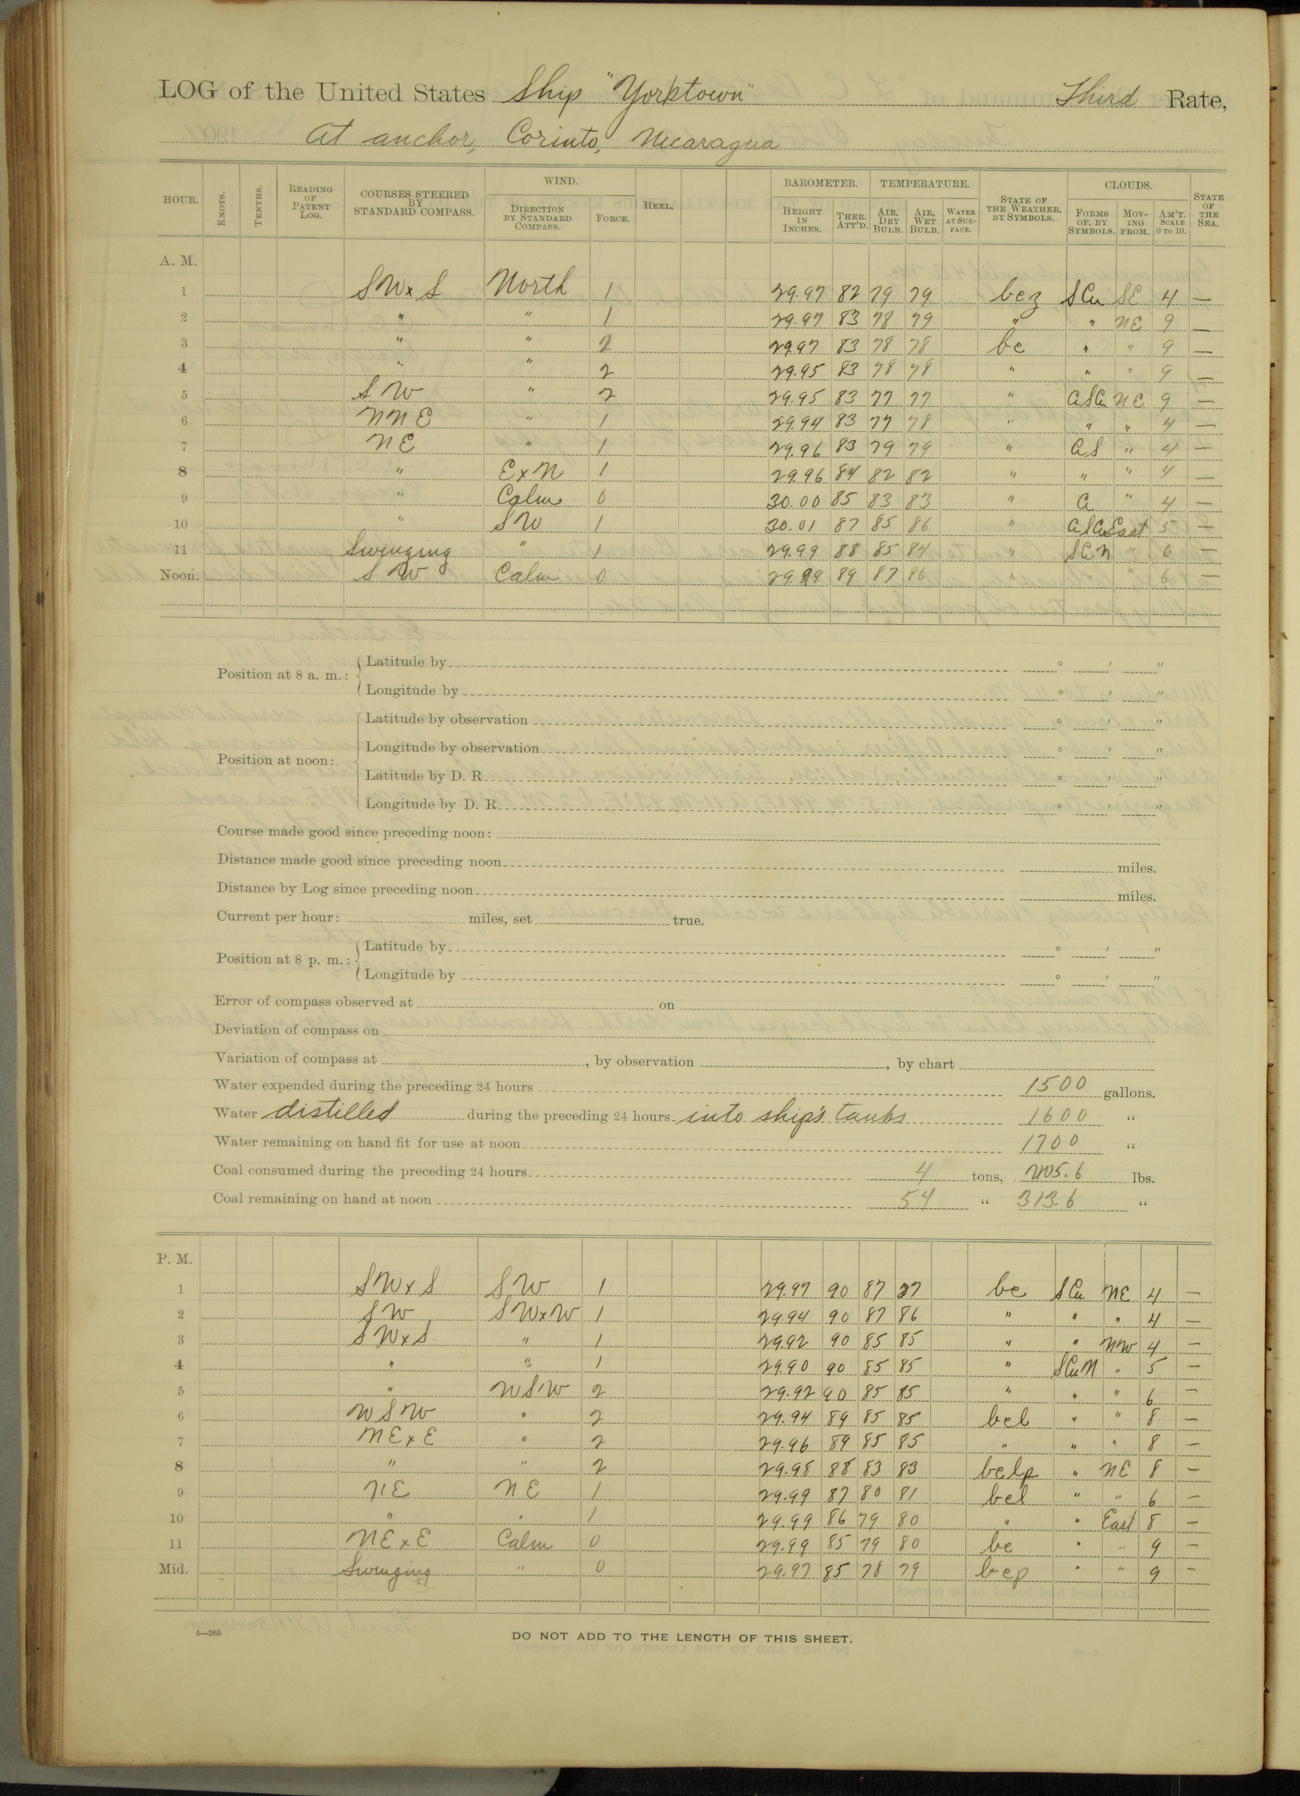 LOG of the United States Ship "Yorktown" Third Rate,
At anchor, Corinto, Nicaragua
HOUR. KNOTS. TENTHS. READING OF PATENT LOG. COURSES STEERED BY STANDARD COMPASS. WIND. DIRECTION BY STANDARD COMPASS. FORCE. HEEL. BAROMETER. HEIGHT IN INCHES. THER. ATT'D. TEMPERATURE. AIR, DRY BULB. AIR, WET BULB. WATER AT SURFACE. STATE OF THE WEATHER, BY SYMBOLS. CLOUDS. FORMS OF, BY SYMBOLS. MOVING FROM. AM'T. SCALE 0 TO 10. STATE OF THE SEA.
A. M.
1 SWxS North 1 29.97 82 79 79 bcz SCu SE 4 —
2 " " 1 29.97 83 78 79 " " NE 9 —
3 " " 2 29.97 83 78 78 bc " " 9 —
4 " " 2 29.95 83 78 78 " " " 9 —
5 SW " 2 29.95 83 77 77 " CSCu NE 9 —
6 NNE " 1 29.94 83 77 78 " " " 4 —
7 NE " 1 29.96 83 79 79 " CS " 4 —
8 " ExN 1 29.96 84 82 82 " " " 4 —
9 " Calm 0 30.00 85 83 83 " C " 4 —
10 " SW 1 30.01 87 85 86 " CSCu East 5 —
11 Swinging " 1 29.99 88 85 84 " SCuN " 6 —
Noon. SW Calm 0 29.99 89 87 86 " " 6 —
Position at 8 a. m.: Latitude by ° ' "
Longitude by ° ' "
Position at noon: Latitude by observation ° ' "
Longitude by observation ° ' "
Latitude by D. R. ° ' "
Longitude by D. R. ° ' "
Course made good since preceding noon:
Distance made good since preceding noon miles.
Distance by Log since preceding noon miles.
Current per hour: miles, set true.
Position at 8 p. m.: Latitude by ° ' "
Longitude by ° ' "
Error of compass observed at on
Deviation of compass on
Variation of compass at , by observation , by chart
Water expended during the preceding 24 hours 1500 gallons.
Water distilled during the preceding 24 hours into ship's tanks 1600 "
Water remaining on hand fit for use at noon 1700 "
Coal consumed during the preceding 24 hours 4 tons, lbs.
Coal remaining on hand at noon 54 " 313.6 "
P. M.
1 SWxS SW 1 29.97 90 87 87 bc SCu NE 4 —
2 SW SWxW 1 29.94 90 87 86 " " " 4 —
3 SWxS " 1 29.92 90 85 85 " " NW 4 —
4 " " 1 29.90 90 85 85 " SCuN " 5 —
5 " WSW 2 29.92 90 85 85 " " " 6 —
6 WSW " 2 29.94 89 85 85 bcl " " 8 —
7 NExE " 2 29.96 89 85 85 " " " 8 —
8 " " 2 29.98 88 83 83 bclp " NE 8 —
9 NE NE 1 29.99 87 80 81 bcl " " 6 —
10 " " 1 29.99 86 79 80 " " East 8 —
11 NExE Calm 0 29.99 85 79 80 bc " " 9 —
Mid. Swinging " 0 29.97 85 78 79 bcp " " 9 —
4—265
DO NOT ADD TO THE LENGTH OF THIS SHEET.